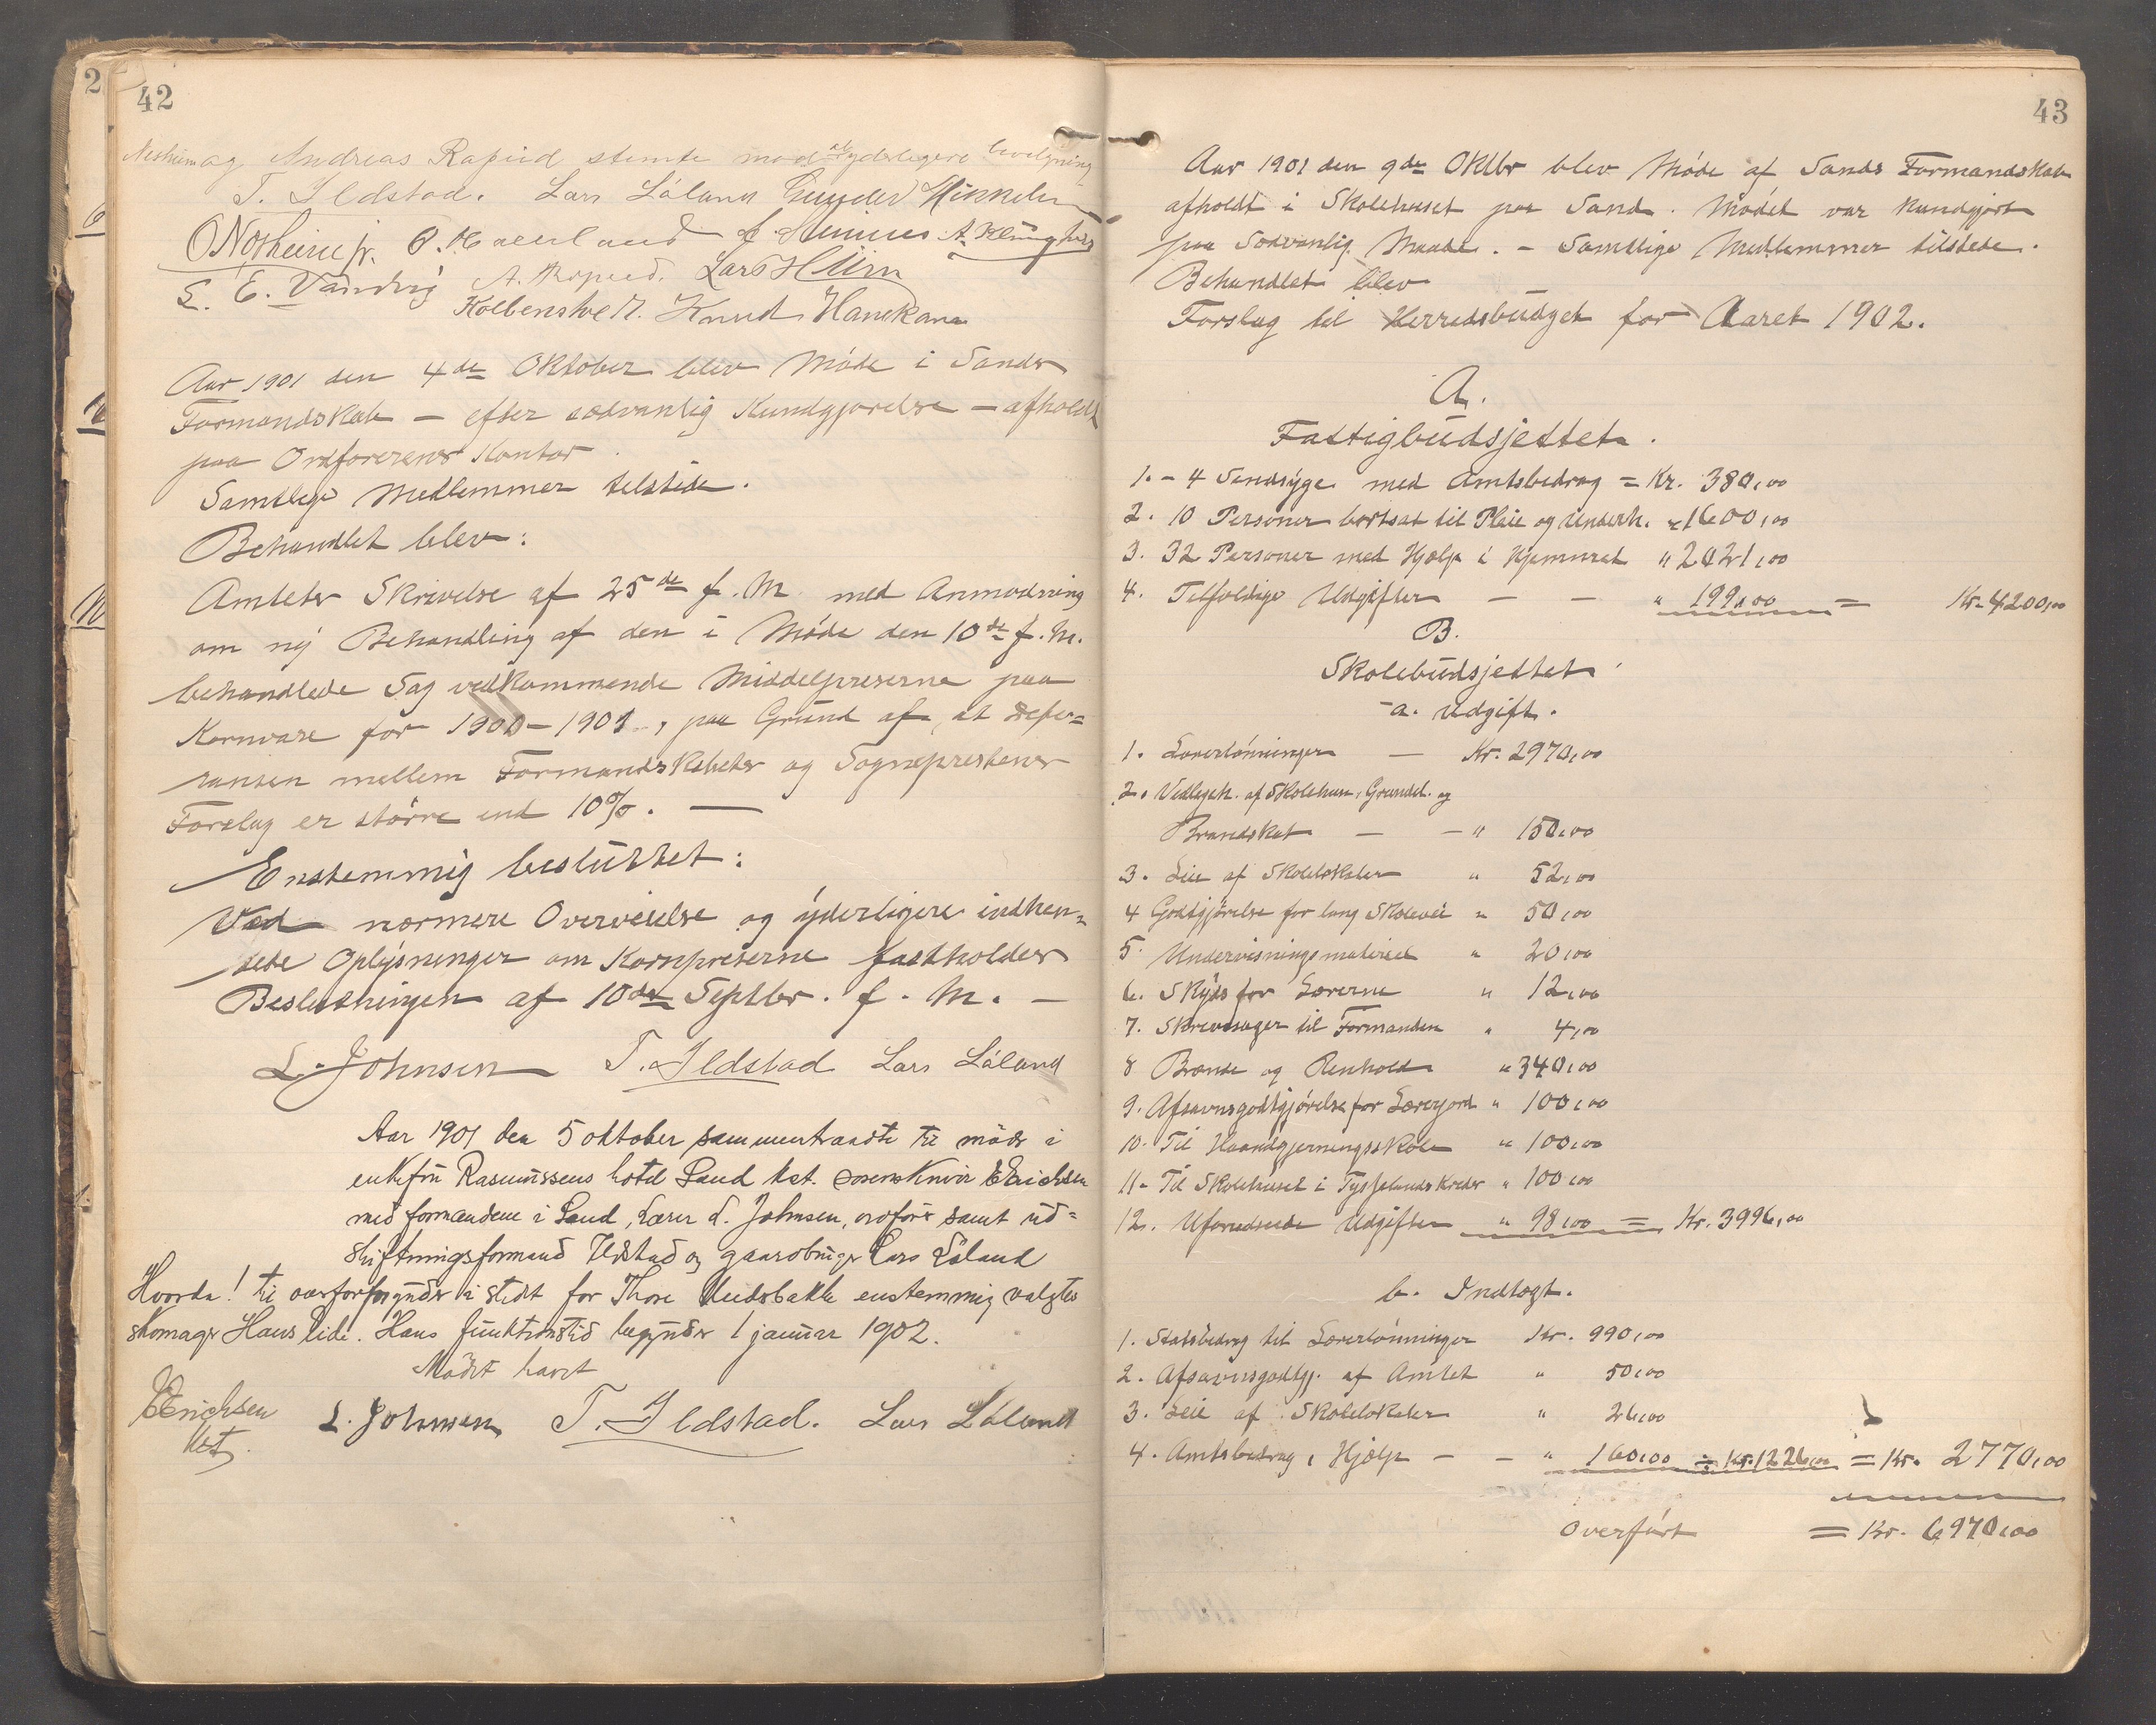 42
og Andreas Rapud stemte mod al yderligere bevilgning
T. Ildstad. Lars Låland Gunder
O Nesheim jr. A. Rapud. Lars Hiim
L. E. Vandvig Knud Hanekam
Aar 1901 den 4de Oktober blev Møde i Sands
Formandskab – efter sædvanlig Kundgjørelse – afholdt
paa Ordførerens Kontor.
Samtlige Medlemmer tilstede.
Behandlet blev:
Amtets Skrivelse af 25de f. M. med Anmodning
om ny Behandling af den i Møde den 10de f. M.
behandlede Sag vedkommende Middelpriserne paa
Kornvare for 1900–1901, paa Grund af, at Defe-
ransen mellem Formandskabets og Sogneprestens
Forslag er større end 10%. —
Enstemmig besluttet:
Ved nærmere Overveielse og yderligere indhen-
tede Oplysninger om Kornpriserne fastholdes
Beslutningen af 10de Septbr. f. M. –
L. Johnsen T. Ildstad Lars Låland
Aar 1901 den 5 oktober sammentraadte til møde i
enkefru Rasmussens hotel Sand kst. sorenskriver Erichsen
med formændene i Sand, Lærer L. Johnsen, ordfører samt ud-
skiftningsformand Ildstad og gaardbruger Lars Låland
Hvorda! til overformynder i stedet for Thore enstemmig valgtes
skomager Hans Lide. Hans funktionstid begynder 1 januar 1902.
Mødet hævet
Erichsen L. Johnsen T. Ildstad. Lars Låland
kst.
43
Aar 1901 den 9de Oktbr blev Møde af Sands Formandskab
afholdt i Skolehuset paa Sand. Mødet var kundgjort
paa Sædvanlig Maade. – Samtlige Medlemmer tilstede.
Behandlet blev
Forslag til Herredsbudget for Aaret 1902.
A.
Fattigbudsjettet.
1. – 4 Sindsyge med Amtsbedrag = Kr. 380,00
2. 10 Personer bortsat til Pleie og Underh. " 1600,00
3. 32 Personer med Hjælp i Hjemmet " 2021,00
4. Tilfeldige Udgifter — — " 199,00 = Kr. 4200,00
B.
Skolebudsjettet.
a. Udgift.
1. Lærerlønninger — Kr. 2970,00
2. Vedligeh. af Skolehus, Grundel. og
Brandskat — – " 150,00
3. Leie af Skolelokaler " 52,00
4 Godtgjørelse for lang Skolevei " 50,00
5. Undervisningsmateriel " 20,00
6. Skyds for Lærerne " 12,00
7. Skrivesager til Formanden " 4,00
8 Brænde og Renhold " 340,00
9. Afsavnsgodtgjørelse for Lærerjord " 100,00
10. Til Haandgjerningsskole " 100,00
11. Til Skolehuset i Tysselands Kreds " 100,00
12. Uforudseede Udgifter " 98,00 = Kr. 3996,00
b. Indtægt.
1. Statsbedrag til Lærerlønninger Kr. 990,00
2. Afsavnsgodtgj. af Amtet " 50,00
3. Leie af Skolelokaler " 26,00
4. Amtsbedrag, Hjælp – – " 160,00 ÷ Kr. 1226,00 = Kr. 2770,00
Overført = Kr. 6970,00